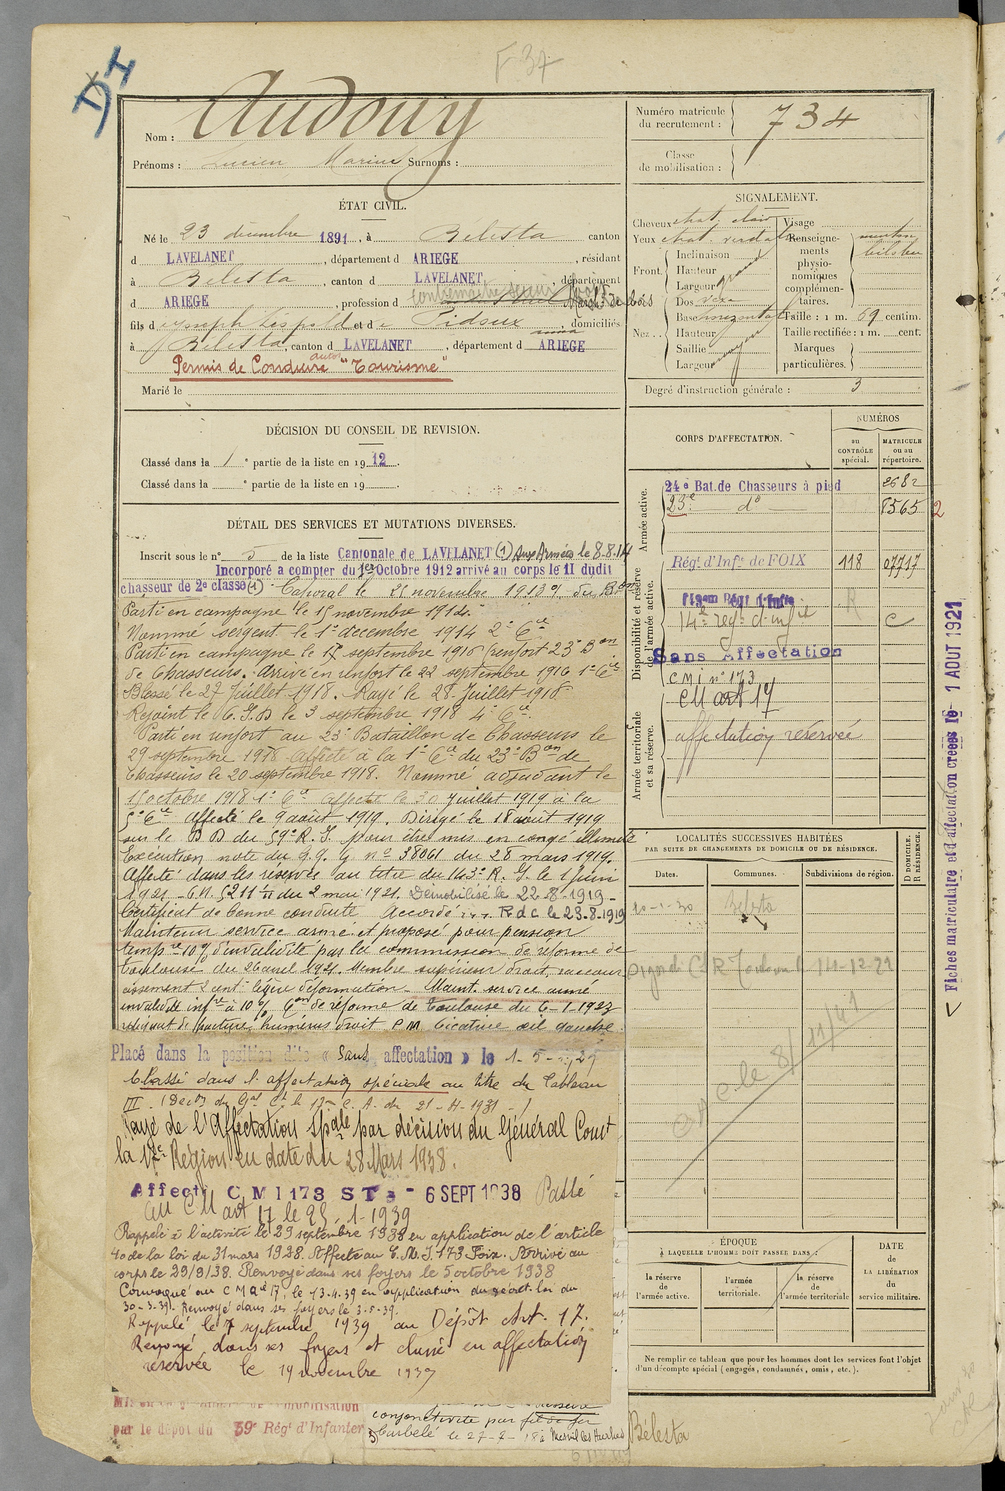 F 37
Audouy
Nom :
Prénoms : Lucien Marius Surnoms :
Numéro matricule
du recrutement :
734
Classe
de mobilisation :
ÉTAT CIVIL.
Né le 23 décembre 1891, à Bélesta canton
d LAVELANET, département d ARIEGE, résidant
à Bélesta, canton d LAVELANET, département
d ARIEGE, profession d
fils d Joseph Léopold et d e Pidoux, domiciliés
à Bélesta, canton d LAVELANET, département d ARIEGE
Permis de Conduire auto "Tourisme"
Marié le
SIGNALEMENT.
Cheveux chat. clair
Yeux chat. verdatre
Front.
Inclinaison
Hauteur
Largeur grand
Nez...
Dos vexe
Base horizontal
Hauteur
Saillie
Largeur moyen
Visage
Renseigne-
ments
physio-
nomiques
complémen-
taires.
menton
bilobé
Taille : 1 m. 69 centim.
Taille rectifiée : 1 m. cent.
Marques
particulières.
Degré d'instruction générale : 3
DÉCISION DU CONSEIL DE REVISION.
Classé dans la 1e partie de la liste en 1912.
Classé dans la e partie de la liste en 19 .
CORPS D'AFFECTATION.
NUMÉROS
au
CONTRÔLE
spécial.
MATRICULE
ou au
répertoire.
Armée active.
24e Bat. de Chasseurs à pied 2682
23e do 8565 2
Disponibilité et réserve
de l'armée active.
Régt d'Infie de FOIX 118 07717
14e régt d'infie C
Sans Affectation
CMI no 173
CM art 17
Armée territoriale
et sa réserve.
affectation réservée
DÉTAIL DES SERVICES ET MUTATIONS DIVERSES.
Inscrit sous le n° 5 de la liste Cantonale de LAVELANET (1) Aux Armées le 8.8.14
Incorporé a compter du 1er Octobre 1912 arrivé au corps le 11 dudit
chasseur de 2e classe (1) Caporal le 21 novembre 1913
Parti en campagne le 15 novembre 1914.
Nommé sergent le 1er décembre 1914 2e Cie
Parti en campagne le 17 septembre 1916 renfort 23e Bon
de Chasseurs. arrivé en renfort le 22 septembre 1916 1e Cie
Blessé le 27 Juillet 1918. Rayé le 28 Juillet 1918
Rejoint le C.I.D le 3 septembre 1918 4e Cie
Parti en renfort au 23e Bataillon de Chasseurs le
29 septembre 1918 Affecté à la 1e Cie du 23e Bon de
Chasseurs le 20 septembre 1918. Nommé adjudant le
15 octobre 1918 1e Cie Affecté le 30 Juillet 1919 à la
5e Cie Affecté le 9 août 1919. Dirigé le 18 août 1919
sur le DD du 59e R.I. pour être mis en congé illimité
Exécution note du G.Q.G no 38061 du 28 mars 1919.
Affecté dans les réserves au titre du 143e R.I. le 1 Juin
1921. C.M. 5211 du 2 mai 1921. Démobilisé le 22-8-1919-
Certificat de bonne conduite Accordé R d c. le 23.8.1919
Maintenu service armé et proposé pour pension
tempre 10% d'invalidité par la commission de réforme de
Toulouse du 26 avril 1921. Membre supérieur droit, raccour
cissement 2 cent. légère déformation. Maint. service armé
invalidité infre à 10% Con de réforme de Toulouse du 6-1-1923
reliquat de fracture humérus droit P M Cicatrice œil gauche.
Placé dans la position dite « Sans affectation » le 1-5-1929
Classé dans l'affectation spéciale au titre du Tableau
III. (Décon du Gal Ct la 17me C.A. du 21-4-1931
Rayé de l'Affectation Spale par décision du Général Comt
la 17e Région en date du 28 Mars 1938.
Affecté CMI 173 ST 3 - 6 SEPT 1938 Passé
au CM art 17 le 25.1-1939
Rappelé à l'activité le 29 septembre 1938 en application de l'article
40 de la loi du 31 mars 1928. Affecté au C.M.I 173 Foix. Arrivé au
corps le 29/9/38. Renvoyé dans ses foyers le 5 octobre 1938
Convoqué au CM Art 17, le 13-4-39 en application du décret-loi du
30-3-39. Renvoyé dans ses foyers le 3-5-39.
Rappelé le 7 septembre 1939 au Dépôt Art. 17.
Renvoyé dans ses foyers et classé en affectation
réservée le 14 novembre 1939
par le dépôt du 59e Régt d'Infanterie
conjonctivite par fil de fer
barbelé le 27-2-15 à Mesnil les Hurlus
Bélesta
LOCALITÉS SUCCESSIVES HABITÉES
PAR SUITE DE CHANGEMENTS DE DOMICILE OU DE RÉSIDENCE.
Dates.
Communes.
Subdivisions de région.
D DOMICILE.
R RÉSIDENCE.
20-1-30 Bélesta
CAC le 8/11/41
ÉPOQUE
À LAQUELLE L'HOMME DOIT PASSER DANS :
la réserve
de l'armée active.
l'armée
territoriale.
la réserve
de l'armée territoriale
DATE
de
LA LIBÉRATION
du
service militaire.
Ne remplir ce tableau que pour les hommes dont les services font l'objet
d'un décompte spécial (engagés, condamnés, omis, etc.).
Fiches matriculaire et d'affectation créées le 1 AOUT 1921